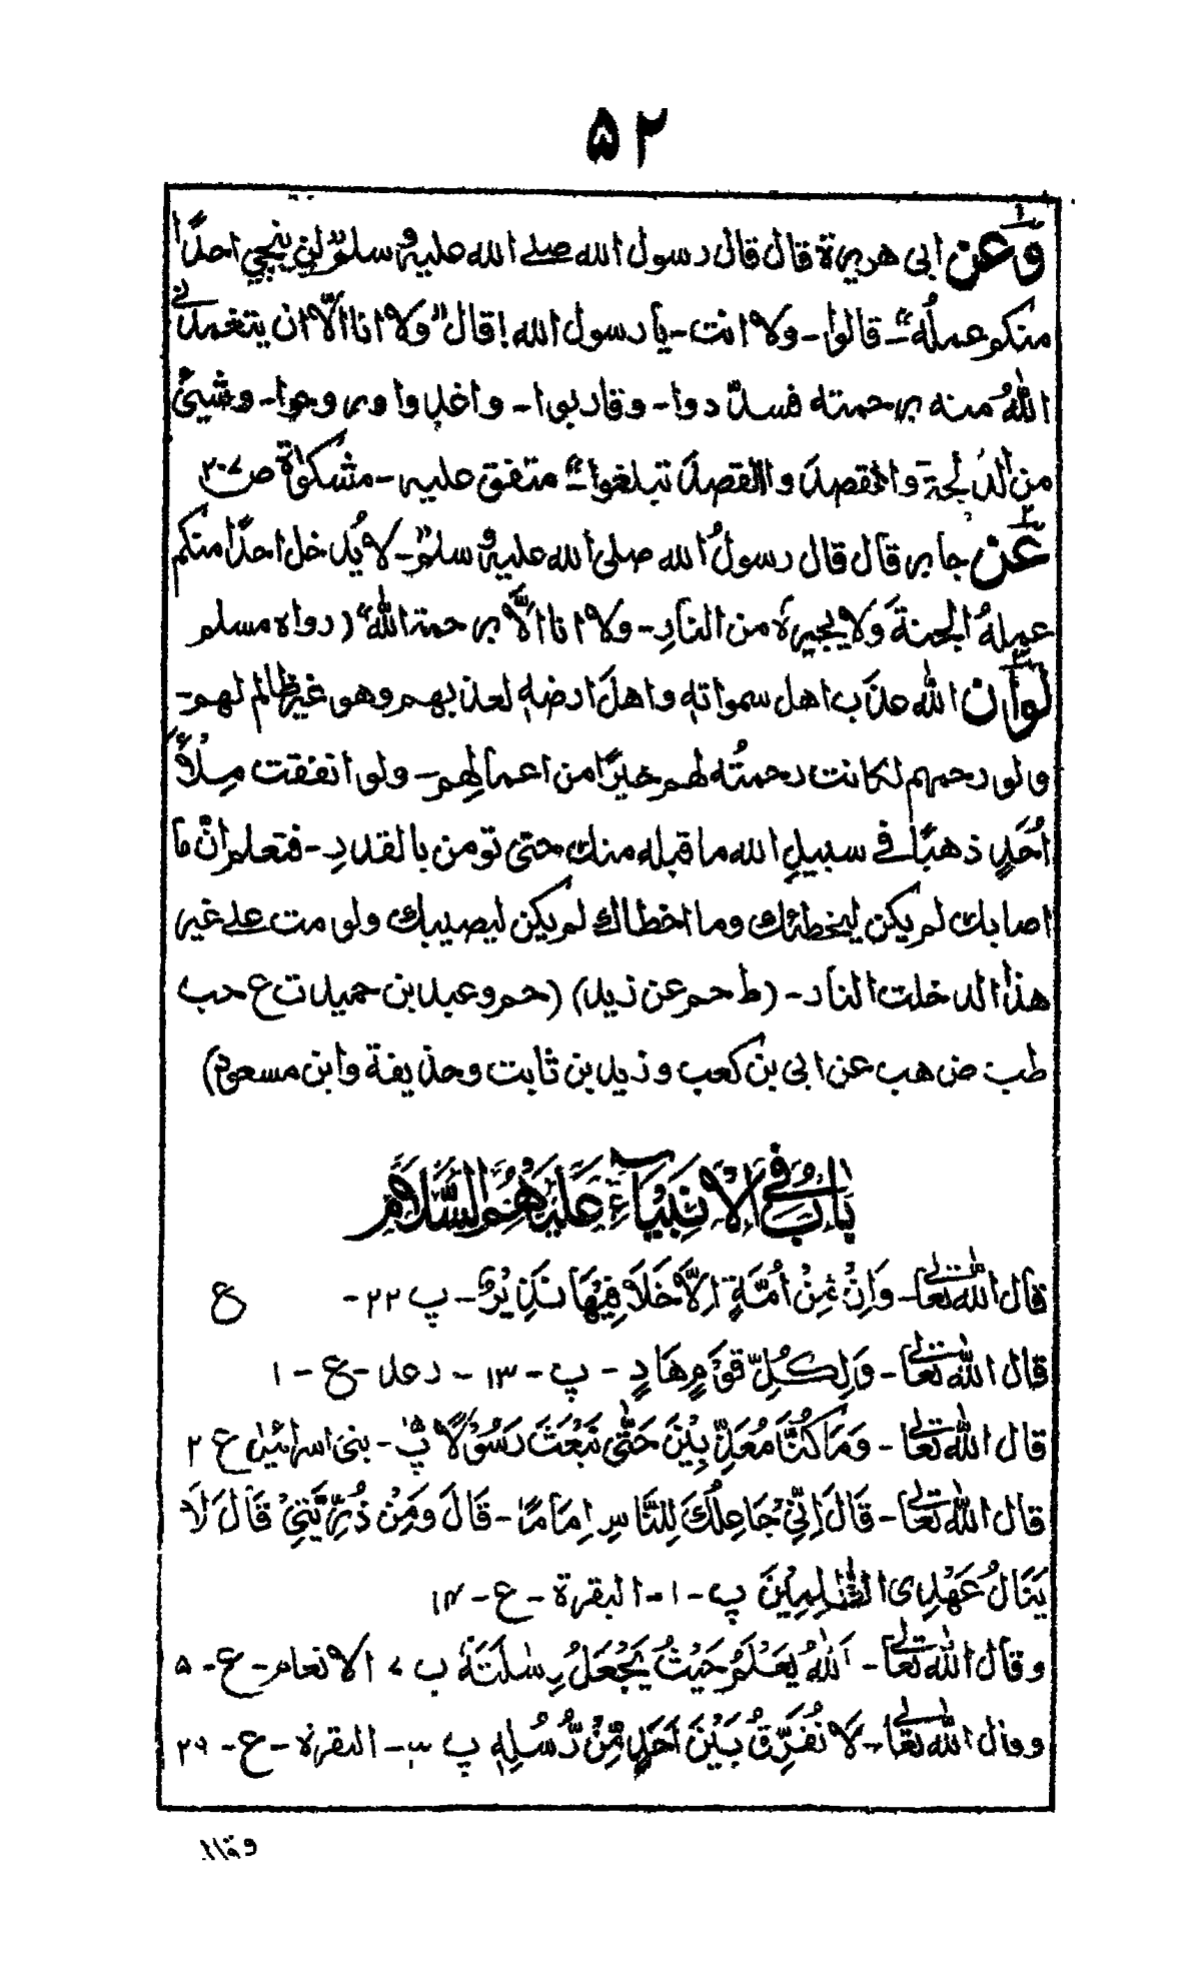 ۵۲
۱
وعن ابی هریرة قال قال رسول الله صلے الله علیہ وسلم "لن ینجی احدًا
منکم عملُه" ـ قالوا ـ ولا انت ـ یا رسول الله! قال "ولا انا الّا ان یتغمدنی
اللهُ منه برحمته فسدّدوا ـ وقاربوا ـ واغدوا وروحوا ـ وشیئٌ
من الدُلجة والقصدَ والقصدَ تبلغوا" ـ متفق علیہ ـ مشکوٰة ص ۲۰۷
۲
عن جابر قال قال رسولُ الله صلی الله علیہ وسلم "ـ لا یُدخل احدًا منکم
عملهُ الجنةَ ولا یجیرهُ من النارِ ـ ولا انا الّا برحمة الله" (رواه مسلم
۳
لو أن الله عذّب اهل سمواته واهل ارضهٖ لعذبهم وهو غیر ظالم لهم ـ
ولو رحمهم لکانت رحمتُه لهم خیرًا من اعمالِهم ـ ولو انفقت مِلأَ
اُحُدٍ ذهبًا فی سبیلِ الله ما قبله منك حتی تومن بالقدرِ ـ فتعلم انّ ما
اصابك لم یکن لیخطئك وما اخطاك لم یکن لیصیبك ولو مت علے غیر
هذا لدخلت النار ـ (ط حم عن زید) (حم وعبد بن حمید ت ع حب
طب ض هب عن ابی بن کعب وزید بن ثابت وحذیفة وابن مسعود)
بَابُ فِی الْاَنْبِیَآءِ عَلَیْهِمُ السَّلَامُ
قال الله تعالٰی ـ وَاِنْ مِّنْ اُمَّةٍ اِلَّا خَلَا فِیْهَا نَذِیْرٌ ـ پ ۲۲ ـ ع
قال الله تعالٰی ـ وَلِکُلِّ قَوْمٍ هَادٍ ـ پ ـ ۱۳ ـ رعد ـ ع ـ ۱
قال الله تعالٰی ـ وَمَا کُنَّا مُعَذِّبِیْنَ حَتّٰی نَبْعَثَ رَسُوْلًا پ ۱۵ ـ بنی اسرائیل ع ۲
قال الله تعالٰی ـ قَالَ اِنِّیْ جَاعِلُكَ لِلنَّاسِ اِمَامًا ـ قَالَ وَمِنْ ذُرِّیَّتِیْ قَالَ لَا
یَنَالُ عَهْدِی الظّٰلِمِیْنَ پ ـ ۱ ـ البقرة ـ ع ـ ۱۴
وقال الله تعالٰی ـ اَللهُ یَعْلَمُ حَیْثُ یَجْعَلُ رِسٰلَتَهٗ ب ۷ الانعام ـ ع ـ ۵
وقال الله تعالٰی ـ لَا نُفَرِّقُ بَیْنَ اَحَدٍ مِّنْ رُّسُلِهٖ پ ۳ ـ البقرة ـ ع ـ ۲۹
وقال